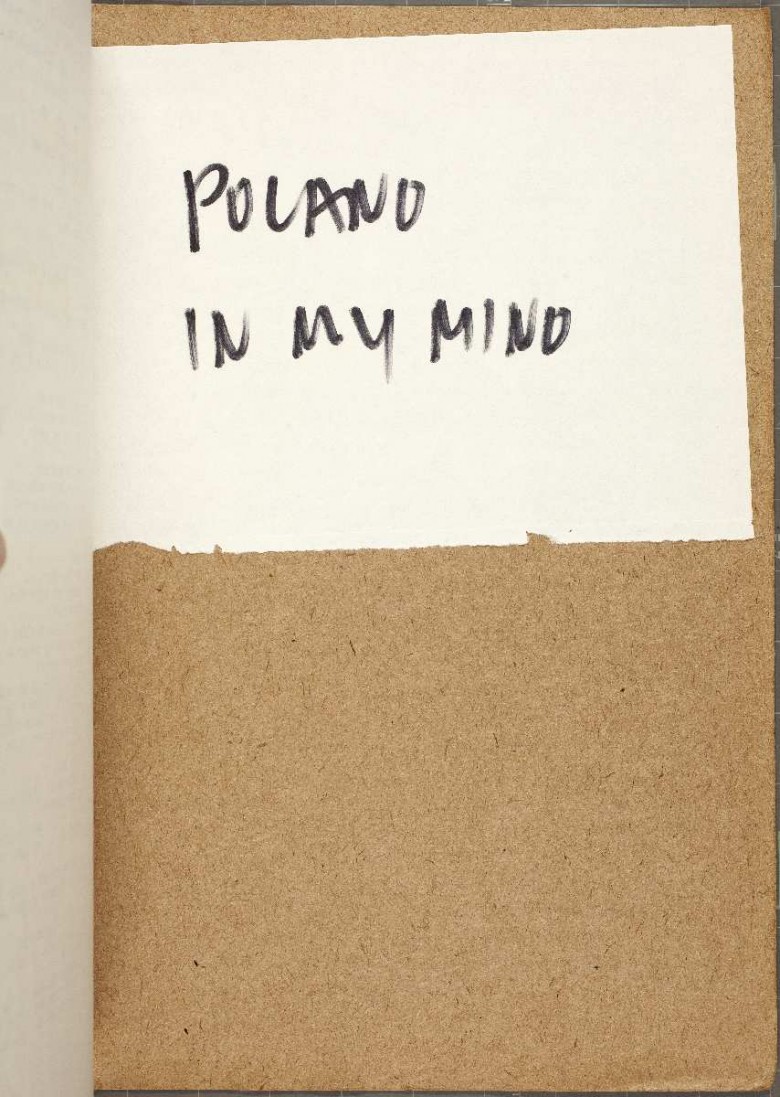 POLAND
IN MY MIND